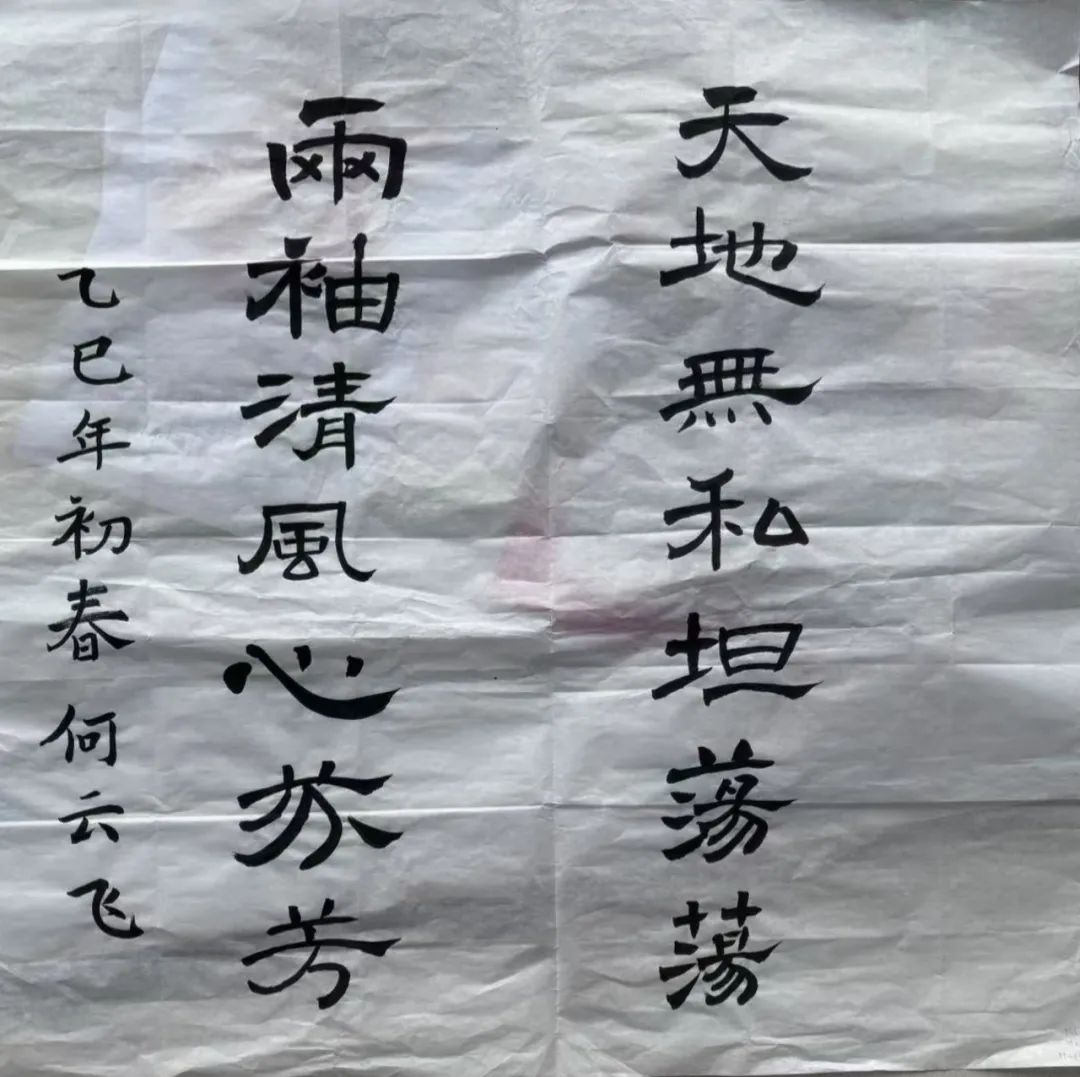 天地無私坦蕩蕩
兩袖清風心芬芳
乙巳年初春何云飞